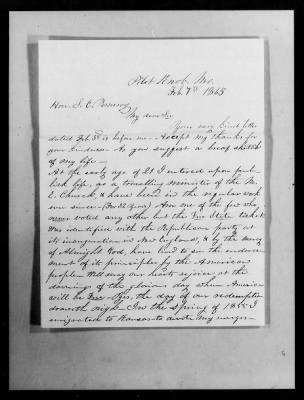 Pilot Knob, Mo.
Feb. 7th 1865
Hon. S. C. Pomeroy
My dear Sir
Your very kind letter
dated Feb. 3d is before me - Accept my thanks for
your kindness. As you suggest a brief sketch
of my life -
At the early age of 21 I entered upon pub-
lick life, as a travelling minister of the M.
E. Church, & have been in the regular work
ever since - Am one of the few who,
never voted any other but the Free State ticket
Was identified with the Republican party at
its inauguration in New England, & by the mercy
of Almighty God, have lived to see the endorse-
ment of its principles by the American
people. Well may our hearts rejoice at the
dawning of the glorious day when America
will be Free - Yes, the day of our redemption
draweth nigh - In the Spring of 1855 I
emigrated to Kansas to devote my ener-